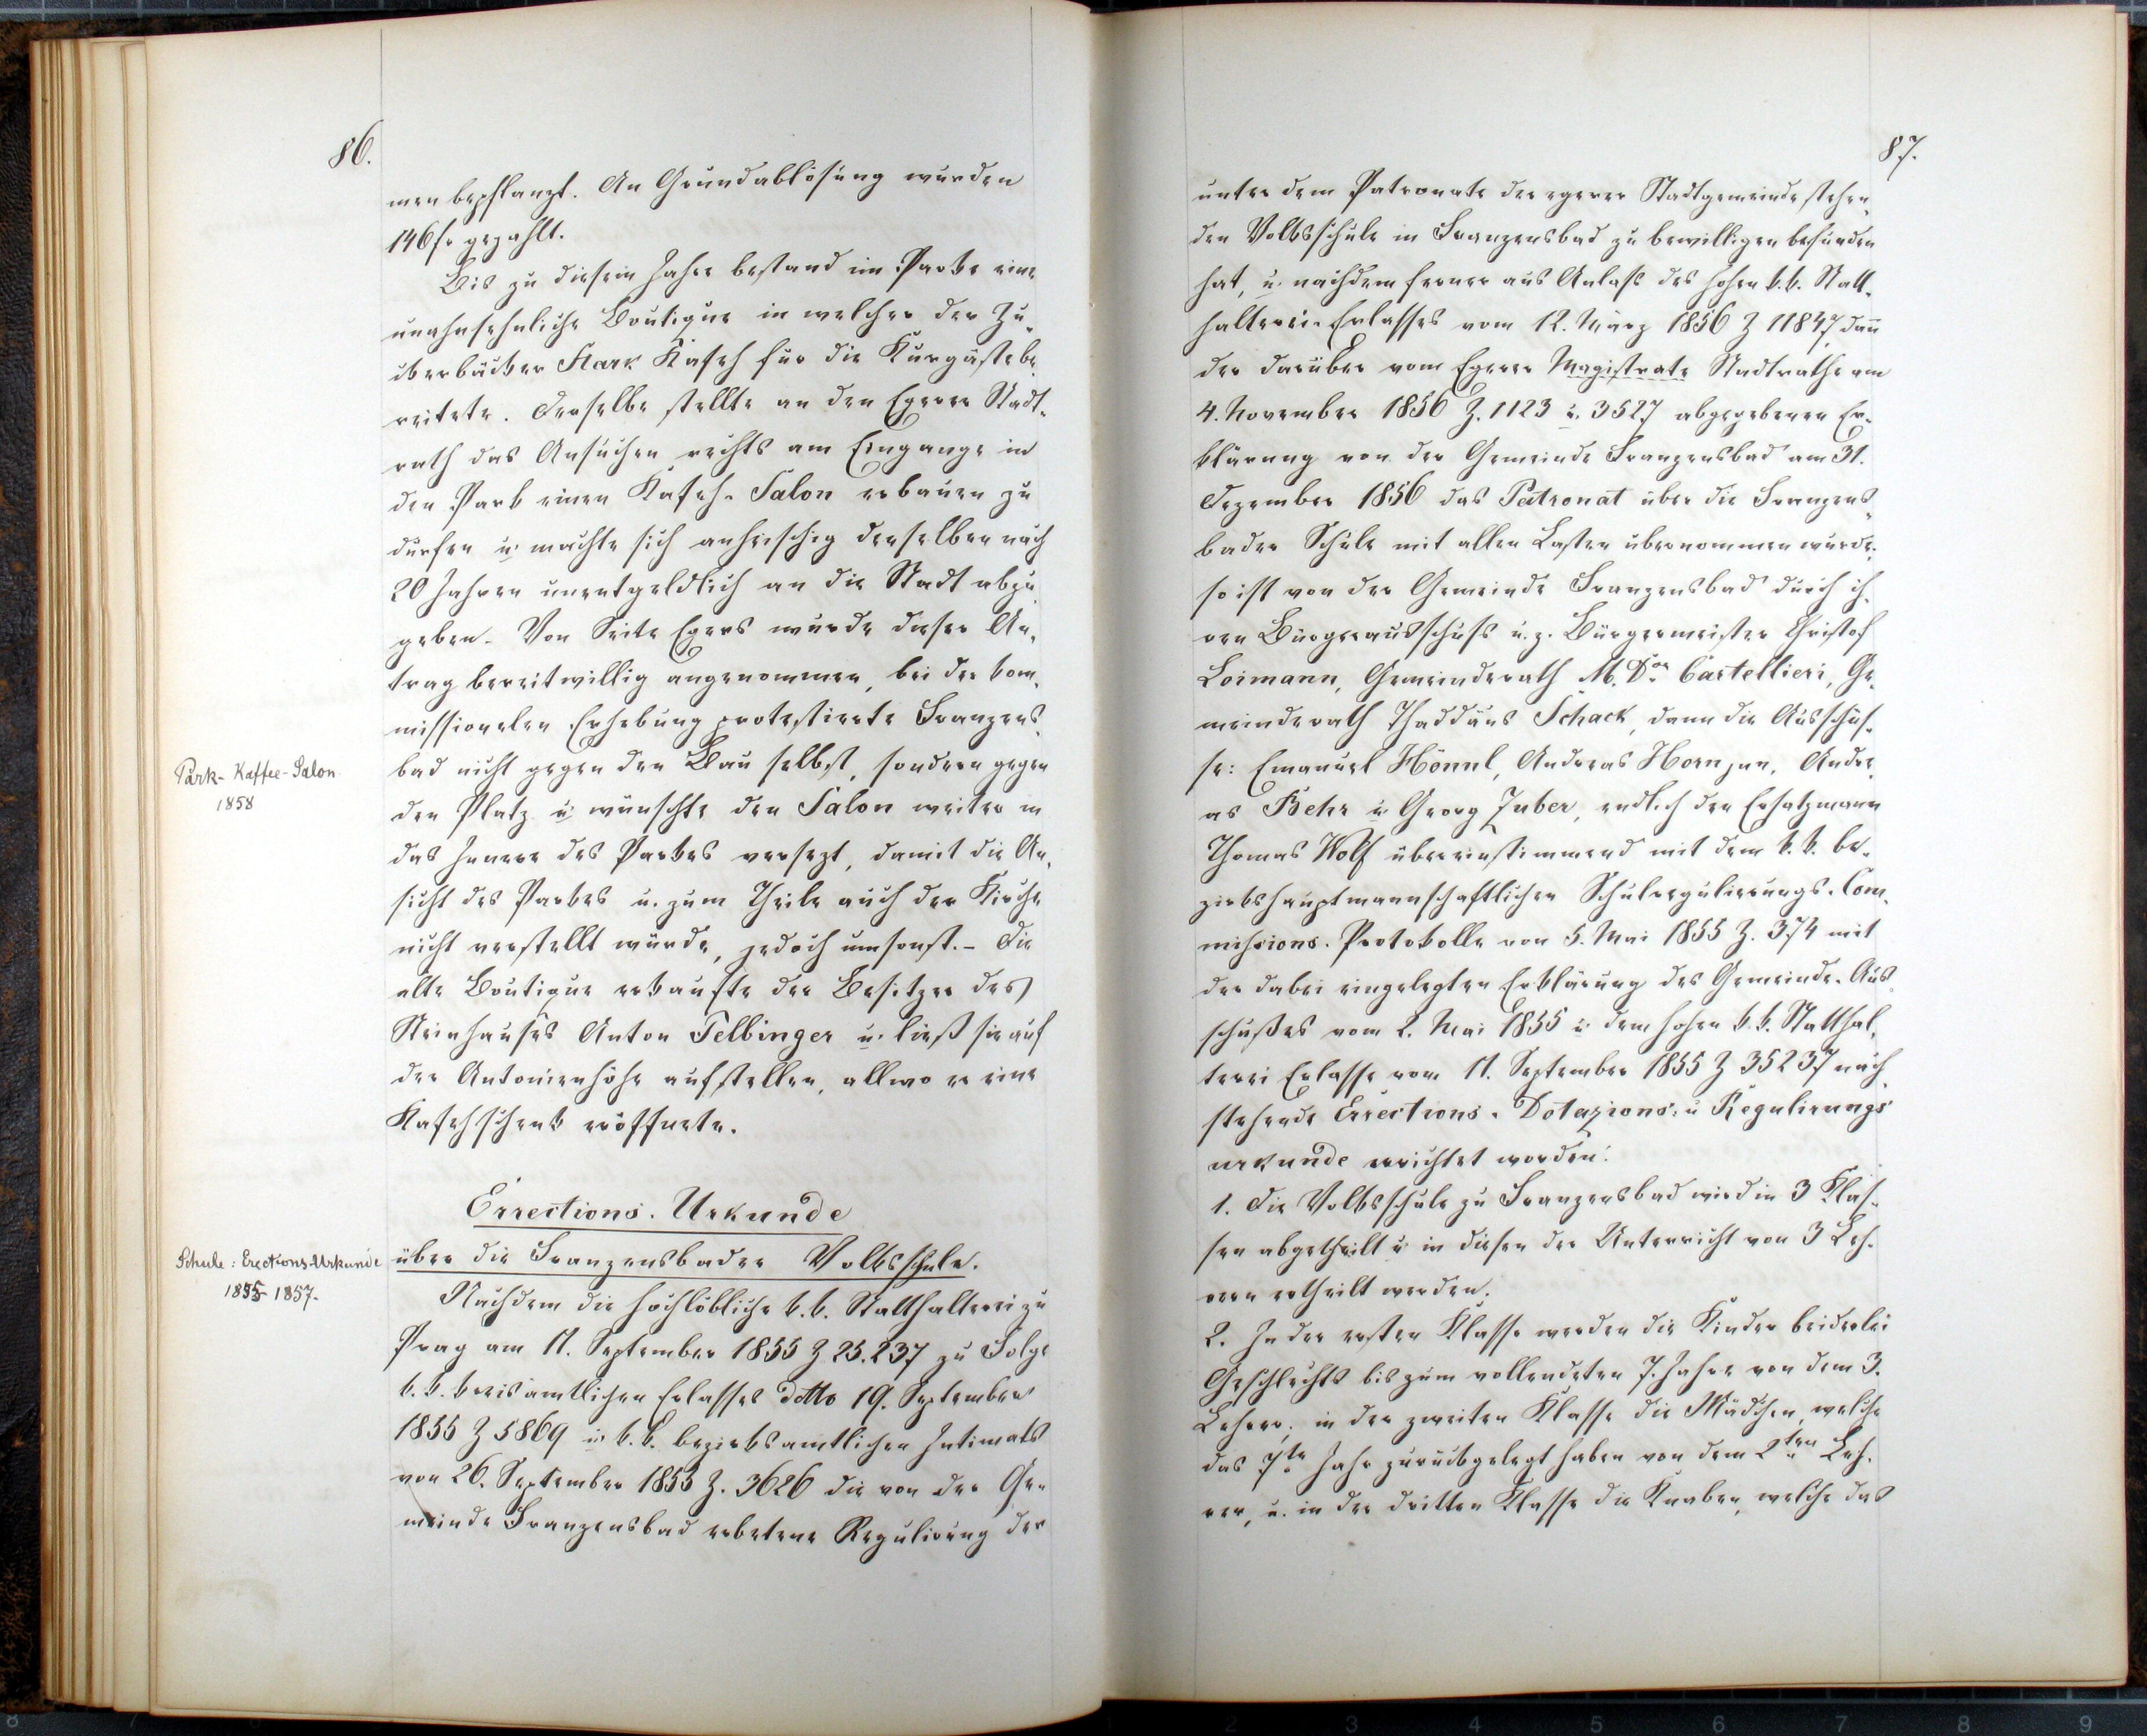 86.
men bepflanzt. An Grundablösung wurden
146 fr gezahlt.
Bis zu diesem Jahre bestand im Parke eine
unahnsehnliche Boutique in welcher der Zu-
ckerbäcker Stark Kafeh für die Kurgäste be-
reitete. Derselbe stellte an den Egerer Stadt-
rath das Ansuchen rechts am Eingange in
den Park einen Kafeh-Salon erbauen zu
durfen u. machte sich anheischig denselben nach
20 Jahren unentgeldlich an die Stadt abzu-
geben. Von Seite Egers wurde dieser An-
trag bereitwillig angenommen, bei der kom-
missionelen Erhebung protestierte Franzens-
Park-Kaffee-Salon
1858
bad nicht gegen den Bau selbst, sondern gegen
den Platz u. wünschte den Salon weiter in
das Innere des Parkes versezt, damit die An-
sicht des Parkes u. zum Theile auch der Kirche
nicht verstellt würde, jedoch umsonst. – Die
alte Boutique erkaufte der Besitzer des
Steinhauses Anton Tellbinger u. ließ sie auf
der Antonienhöhe aufstellen, allwo er eine
Kafehschenk eröffnete.
Errections-Urkunde
Schule: Erections-Urkunde
1855-1857.
über die Franzensbader Volksschule.
Nachdem die hochlöbliche k. k. Statthalterei zu
Prag am 11. September 1855 Z 25.237 zu Folge
k. k. kreisamtlichen Erlasses ddtto 19. September
1855 Z 5869 u. k. k. bezirksamtlichen Intimats
von 26. September 1855 Z. 3626 die von der Ge-
meinde Franzensbad erbetene Regulirung der
87.
unter dem Patronate der egerer Stadtgemeinde stehen-
den Volksschule in Franzensbad zu bewilligen befunden
hat, u. nachdem ferner aus Anlaß des hohen k. k. Statt-
halterei-Erlasses vom 12. März 1856 Z 11847 dan̄
der darüber vom Egerer Magistrate Stadtrathe am
4. November 1856 Z. 1123 u. 3527 abgegebenen Er-
klärung von der Gemeinde Franzensbad am 31.
Dezember 1856 das Patronat über die Franzens-
bader Schule mit allen Lasten übernommen wurde
so ist von der Gemeinde Franzensbad durch ih-
ren Bürgerausschuß u. z. Bürgermeister Christof
Loimann, Gemeinderath M. Dor Cartellieri, Ge-
meinderath Thaddäus Schack, dann die Ausschüs-
se: Emanuel Hönnl, Anderas Horn jun. Ander-
as Behr u. Georg Zuber, endlich den Ersatzmann
Thomas Wolf übereinstimmend mit dem k. k. be-
zirkshauptmannschaftlichen Schulregulierungs-Com-
mißions-Protokolle von 5. Mai 1855 Z. 374 mit
der dabei eingelegten Erklärung des Gemeinde-Aus-
schußes vom 2. Mai 1855 u. dem hohen k. k. Statthal-
terei Erlasse vom 11. September 1855 Z 35237 nach-
stehende Errections-Dotazions- u. Regulirungs
urkunde errichtet worden:
1. Die Volksschule zu Franzensbad wird in 3 Klas-
sen abgetheilt u. in diesen der Unterricht von 3 Leh-
rern ertheilt werden.
2. In der ersten Klasse werden die Kinder beiderlei
Geschlechts bis zum vollendeten 7. Jahre von dem 3.
Lehrer, in der zweiten Klasse die Mädchen, welche
das 7te Jahr zurückgelegt haben von dem 2ten Leh-
rer, u. in der dritten Klasse die Knaben, welche das